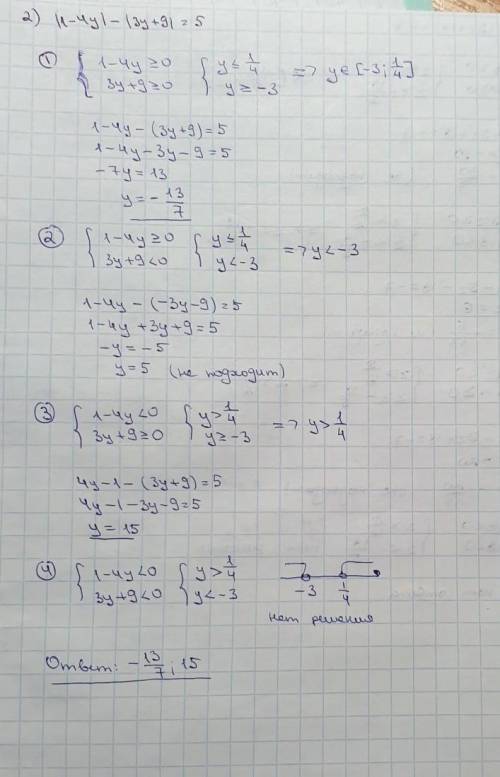 2) |1-4y| - |3y+9| = 5
① { 1-4y ≥ 0 { y ≤ 1/4 => y ∈ [-3; 1/4]
3y+9 ≥ 0 y ≥ -3
1-4y - (3y+9) = 5
1-4y-3y-9 = 5
-7y = 13
y = - 13/7
② { 1-4y ≥ 0 { y ≤ 1/4 => y < -3
3y+9 < 0 y < -3
1-4y - (-3y-9) = 5
1-4y+3y+9 = 5
-y = -5
y = 5 (не подходит)
③ { 1-4y < 0 { y > 1/4 => y > 1/4
3y+9 ≥ 0 y ≥ -3
4y-1 - (3y+9) = 5
4y-1-3y-9 = 5
y = 15
④ { 1-4y < 0 { y > 1/4
3y+9 < 0 y < -3 -3 1/4
нет решения
Ответ: - 13/7; 15